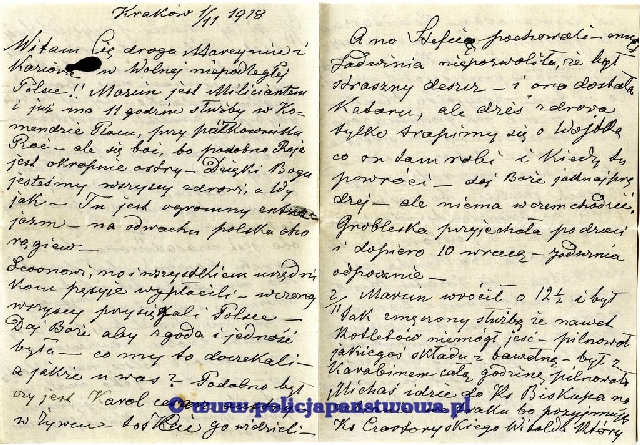 Kraków 1/11 1918
Witam Cię droga Marcyniu i
Kaziow w Wolnej niepodległej
Polsce!! Marun jest Miliciantem
i już ma 11 godzin służby w Ko-
mendzie Placu, przy pułkowniku
ale się boi, bo podobno
jest okropnie ostry — Dzięki Bogu
jesteśmy wszyscy zdrowi, a Wy
jak — Tu jest ogromny entuz-
jazm — na odwachu polska cho
rągiew —
Leonowi, no i wszystkiem urzędni
kom pęsyje wypłacili — wczoraj
wszyscy przysięgali Polsce —
Daj Boże aby zgoda i jedność
była — co my to doczekali —
a jakże u was? Podobno był
czy jest Karol
w Żywcu tos go widzieli —
A no pochowali —
Jadwinia niepozwoliła, że był
straszny deszcz — i ona dostała
Kataru, ale dziś zdrowa
tylko trapimy się o Wojtka
co on tam robi i kiedy tu
powróci — daj Boże jaknajprę
dzej — ale niema wczem chodzić,
Grobleska przyjechała po dzieci
i dopiero 10 wraca — Jadwinia
odpocznie —
Marun wrócił o 12½ i był
tak zmęczony służbą że nawet
kotletów niemógł jeść — pilnował
jakiegoś składu z bawełną — był z
Karabinem całą godzinę pilnował
Michaś idzie do Ks Biskupa na
bo przyjmują
Ks Czartoryskiego Witolda który
© www.policjapanstwowa.pl